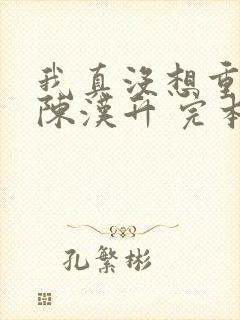 我真没想重
陈汉升 完本
孔繁彬